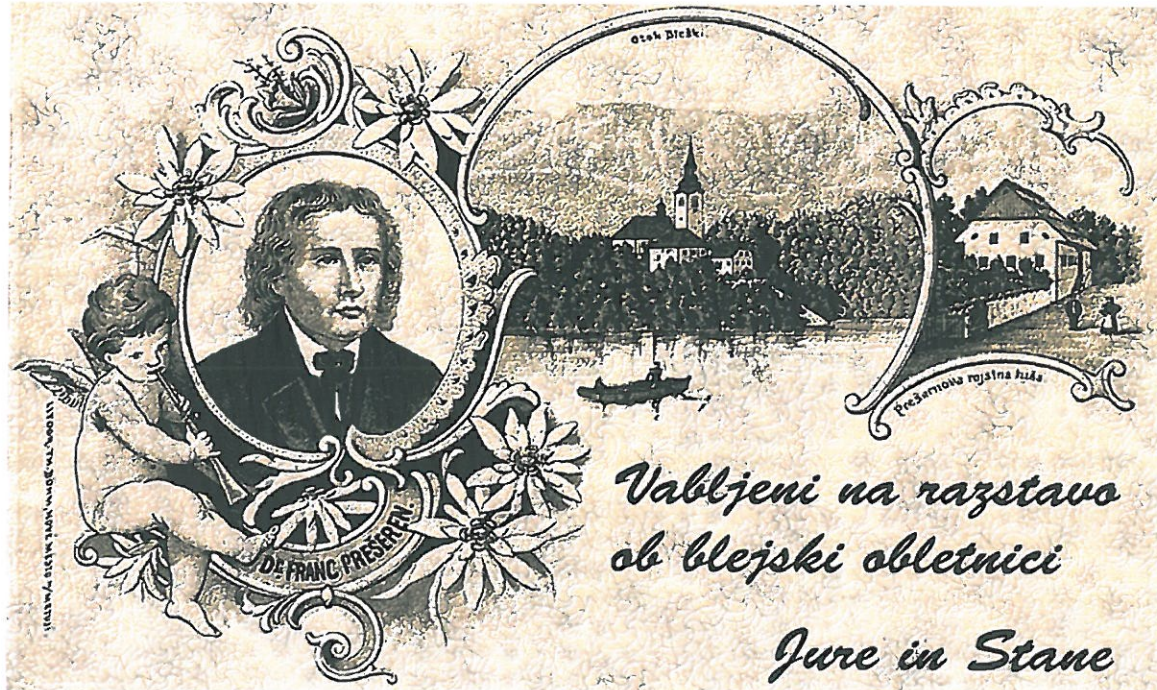 Otok Bleški.
Prešernova rojstna hiša.
DR. FRANC PREŠEREN.
Vabljeni na razstavo
ob blejski obletnici
Jure in Stane